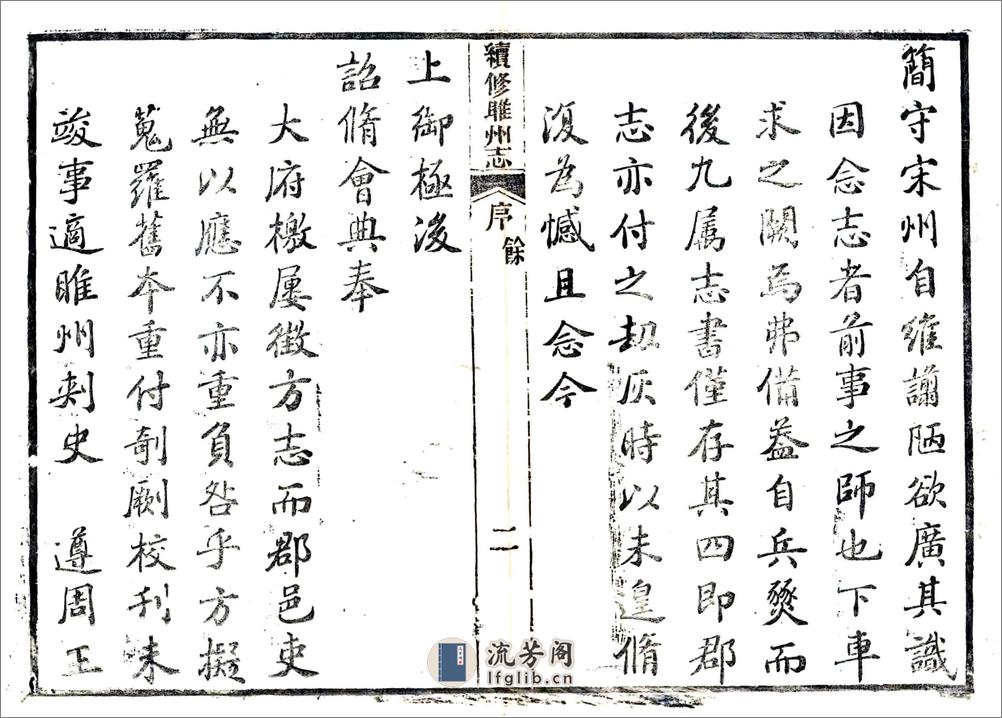 簡守宋州自維謭陋欲廣其識
因念志者前事之師也下車
求之闕焉弗備益自兵燹而
後九属志書僅存其四即郡
志亦付之刧灰時以未遑脩
復為憾且念今
續修睢州志
序
餘
二
上御極後
詔脩會典奉
大府檄屢徵方志而郡邑吏
無以應不亦重負咎乎方擬
蒐羅舊夲重付剞劂校刋未
竣事適睢州刾史 遵周王
流芳阁
lfglib.cn